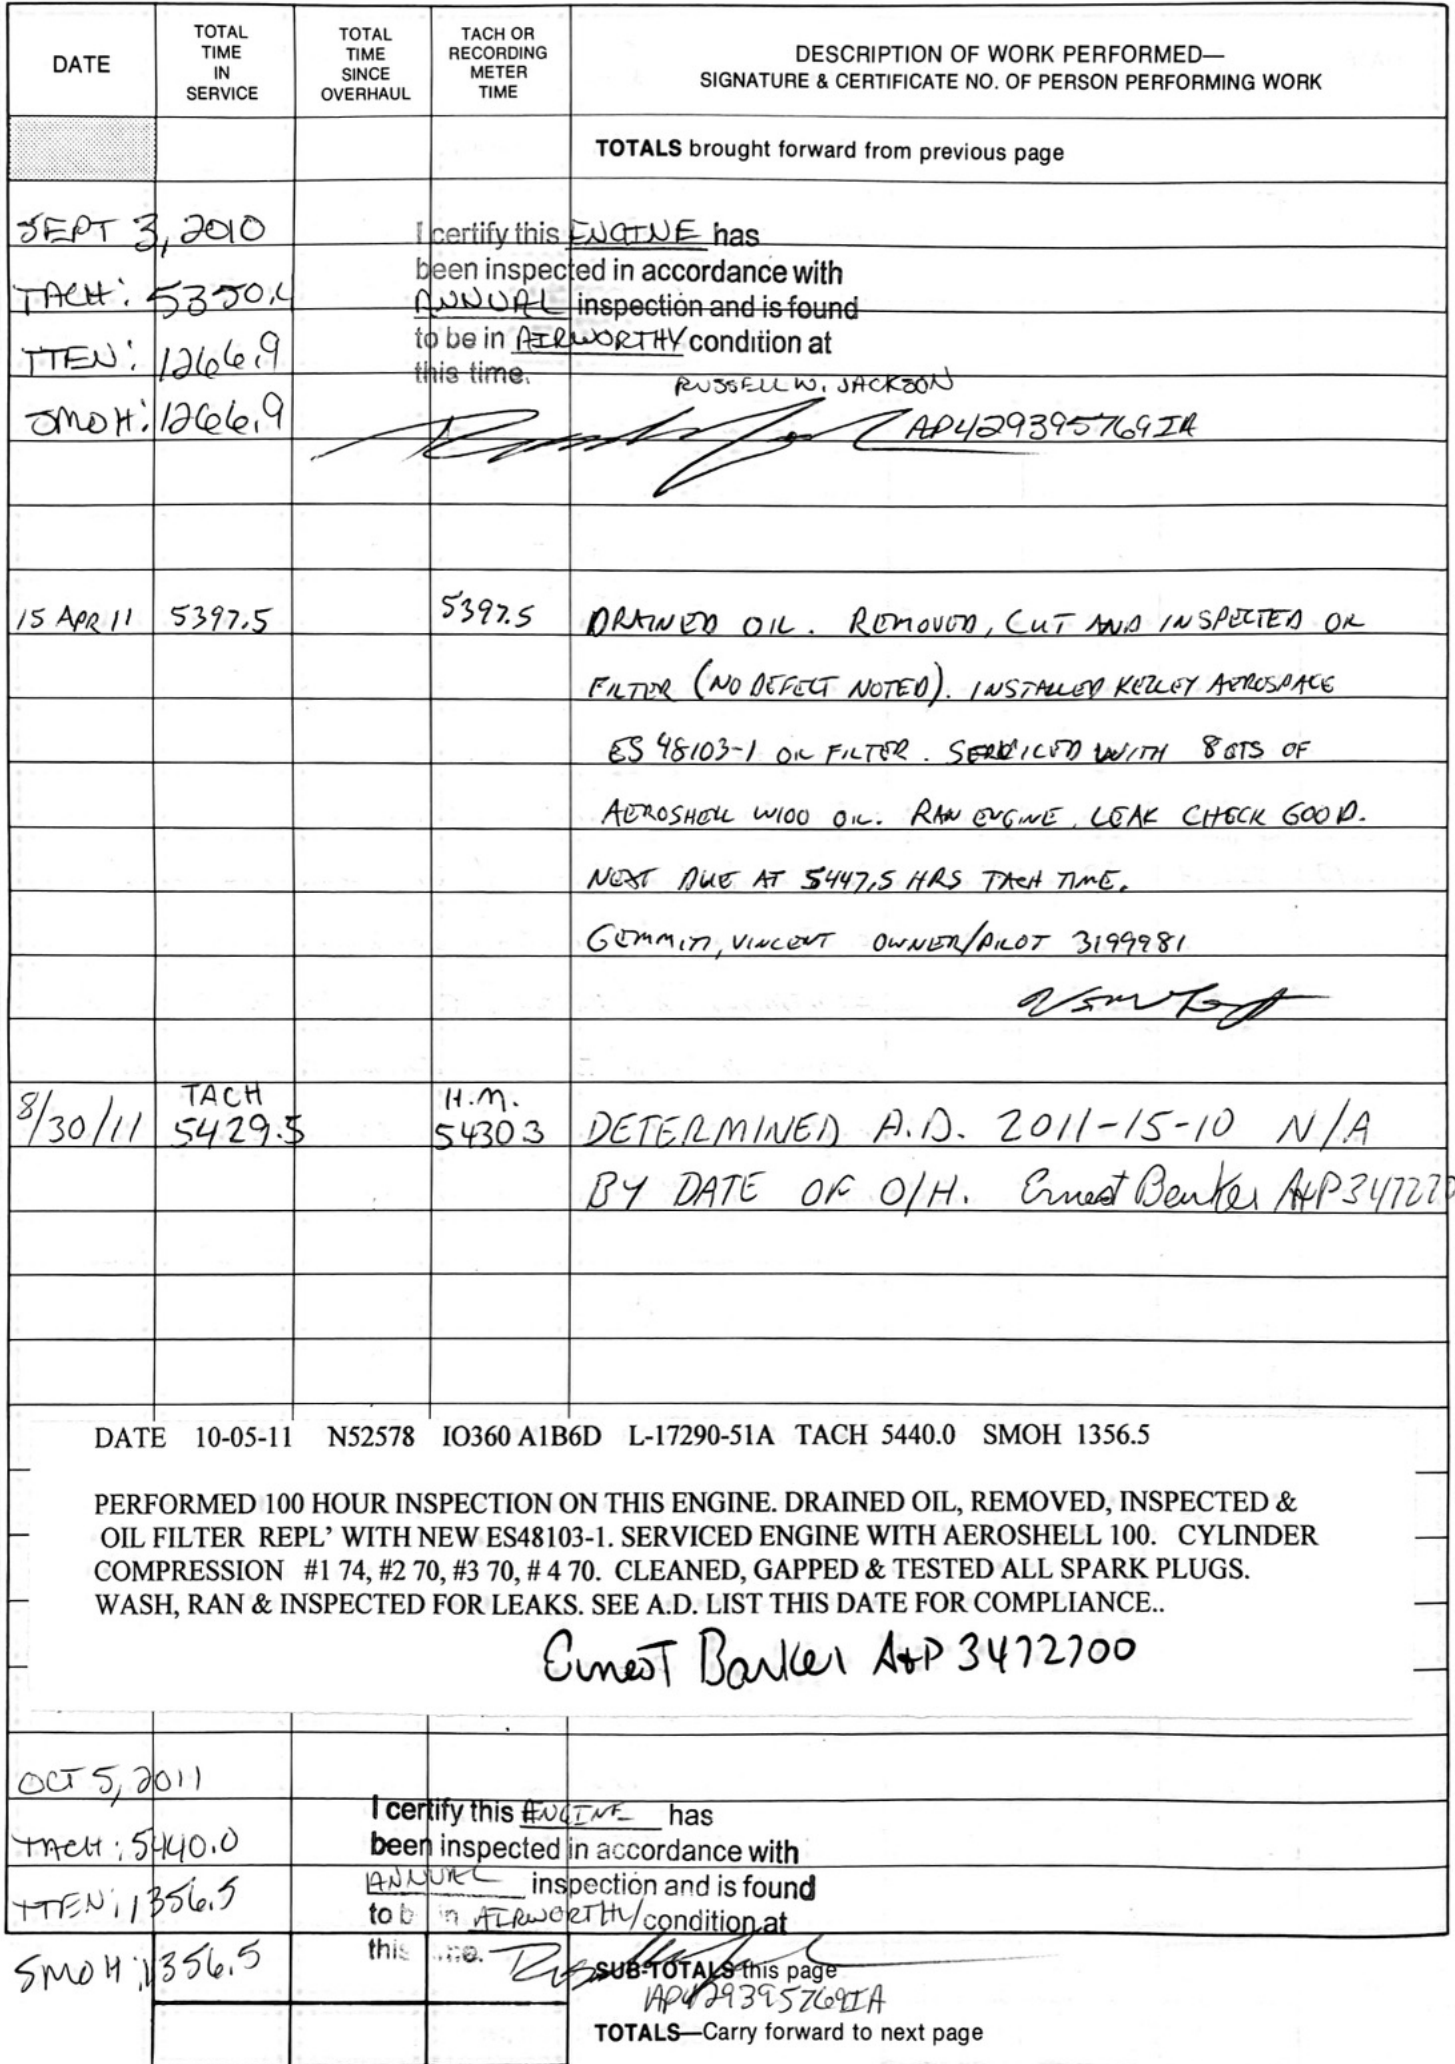 DATE
TOTAL TIME IN SERVICE
TOTAL TIME SINCE OVERHAUL
TACH OR RECORDING METER TIME
DESCRIPTION OF WORK PERFORMED—
SIGNATURE & CERTIFICATE NO. OF PERSON PERFORMING WORK
TOTALS brought forward from previous page
SEPT 3, 2010
I certify this ENGINE has
been inspected in accordance with
TACH: 5350.4
ANNUAL inspection and is found
TTEN: 1266.9
to be in AIRWORTHY condition at
this time.
RUSSELL W. JACKSON
SMOH: 1266.9
AP429395769IA
15 APR 11 5397.5 5397.5 DRAINED OIL. REMOVED, CUT AND INSPECTED OIL
FILTER (NO DEFECT NOTED). INSTALLED KELLEY AEROSPACE
ES 48103-1 OIL FILTER. SERVICED WITH 8 QTS OF
AEROSHELL W100 OIL. RAN ENGINE, LEAK CHECK GOOD.
NEXT DUE AT 5447.5 HRS TACH TIME.
GEMMITI, VINCENT OWNER/PILOT 3199981
TACH H.M.
8/30/11 5429.5 5430 3 DETERMINED A.D. 2011-15-10 N/A
BY DATE OF O/H. Ernest Barker A&P 347270
DATE 10-05-11 N52578 IO360 A1B6D L-17290-51A TACH 5440.0 SMOH 1356.5
PERFORMED 100 HOUR INSPECTION ON THIS ENGINE. DRAINED OIL, REMOVED, INSPECTED &
OIL FILTER REPL’ WITH NEW ES48103-1. SERVICED ENGINE WITH AEROSHELL 100. CYLINDER
COMPRESSION #1 74, #2 70, #3 70, # 4 70. CLEANED, GAPPED & TESTED ALL SPARK PLUGS.
WASH, RAN & INSPECTED FOR LEAKS. SEE A.D. LIST THIS DATE FOR COMPLIANCE..
Ernest Barker A&P 3472700
OCT 5, 2011
I certify this ENGINE has
TACH: 5440.0
been inspected in accordance with
ANNUAL inspection and is found
TTEN: 1356.5
to b in AIRWORTHY condition at
this me.
SMOH: 1356.5
SUB-TOTALS this page
AP429395769IA
TOTALS—Carry forward to next page